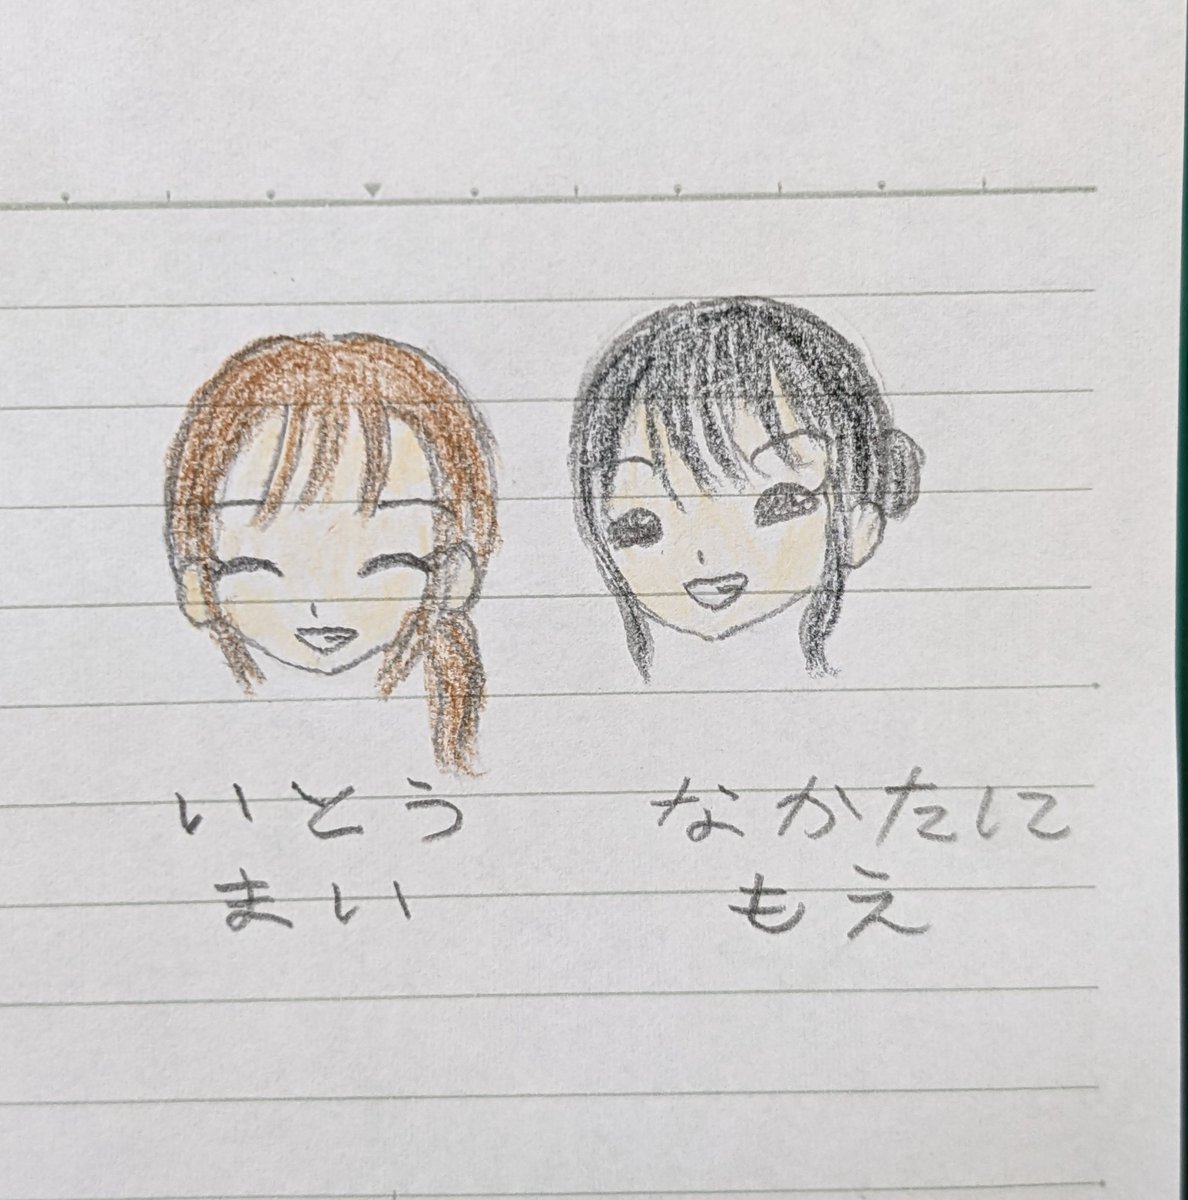 いとう なかたに
まい もえ